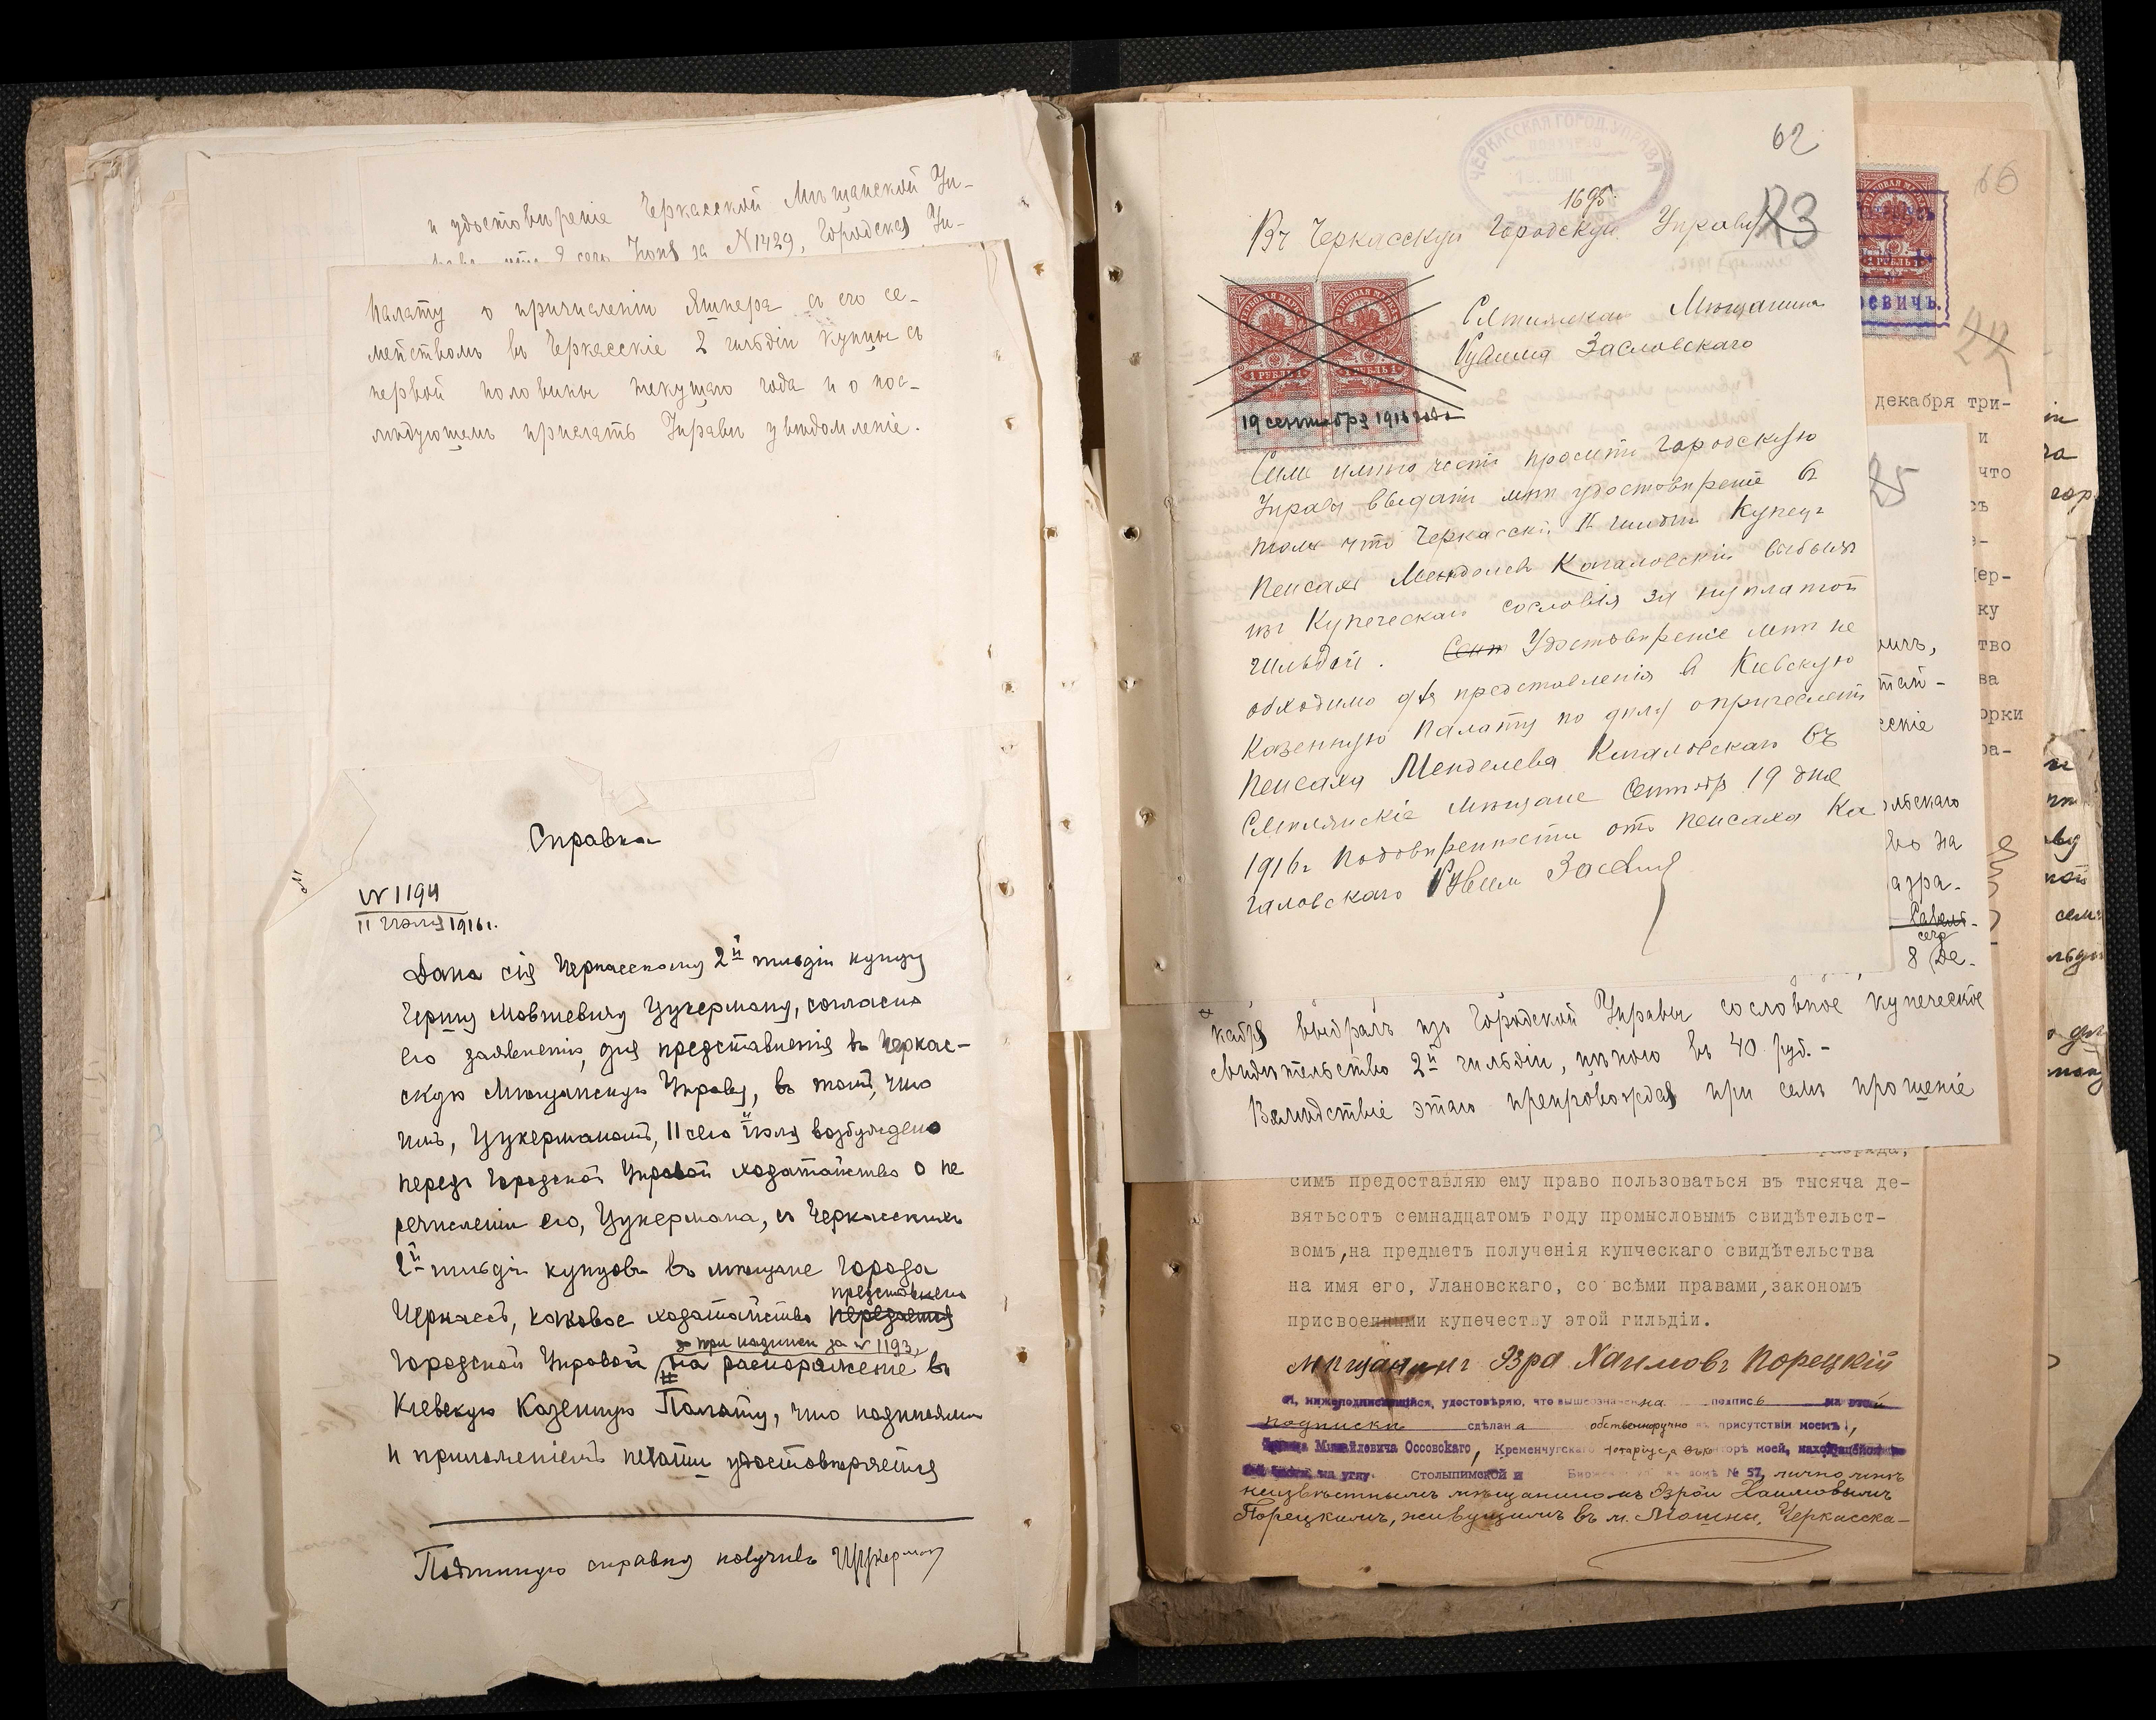 и удостовѣреніе Черкасской Мѣщанской Уп-
сего Іюня за №1429, Городская Уп-
палату о причисленіи Яшпера съ его се-
мействомъ въ Черкасскіе 2 гильдіи купцы съ
первой половины текущаго года и о пос-
лѣдующемъ прислать Управѣ увѣдомленіе.
Справка
№ 1194
11 Іюля 1916 г.
Дана сія Черкасскому 2й гильдіи купцу
Гершу Мовшевичу Цукерману, согласно
его заявленію, для представленія въ Черкас-
скую Мѣщанскую Управу, въ томъ, что
имъ, Цукерманомъ, 11 сего іюля возбуждено
передъ Городской Управой ходатайство о пе
речисленіи его, Цукермана, изъ Черкасскихъ
2й гильдіи купцовъ въ мѣщане города
представлено
Черкассъ, каковое ходатайство передается
при надписи за № 1193,
Городской Управой на распоряженіе въ
Кіевскую Казенную Палату, что подписями
и приложеніемъ печати удостовѣряется
Подлинную справку получилъ Цукерман
ЧЕРКАССКАЯ ГОРОД. УПРАВА
62
1695
Въ Черкасскую Городскую Управу
23
ГЕРБОВАЯ МАРКА ГЕРБОВАЯ МАРКА
1 РУБЛЬ 1 1 РУБЛЬ 1
19 сентября 1916 года
Мѣщанина
Рувима Засловскаго
Симъ имѣю честь просить Городскую
Управу выдать мнѣ удостовѣреніе въ
томъ что Черкасскій II гильдіи Купецъ
Пейсахъ Менделевъ Кагаловскій выбылъ
изъ Купеческаго сословія за неуплатой
гильдіи. Удостовѣреніе мнѣ не
обходимо для представленія в Кіевскую
Казенную Палату по дѣлу о причеслении
Пейсаха Менделева Кагаловскаго въ
Смѣлянскіе мѣщане Сентябр 19 дня
1916г По довѣренности отъ Пейсаха Ка
галовскаго Рувим
16
ГЕРБОВАЯ МАРКА
1 РУБЛЬ 1
евичъ.
22
декабря три-
и
что
25
ку
тво
ва
орки
ра-
скіе
ольскаго
во на
азра-
8 Де-
кабря выбралъ изъ Городской Управы сословное купеческое
свидѣтельство 2й гильдіи, цѣною въ 40 руб. -
Вслѣдствіе этаго препровождая при семъ прошеніе
разряда,
симъ предоставляю ему право пользоваться въ тысяча де-
вятьсотъ семнадцатомъ году промысловымъ свидѣтельст-
вомъ,на предметъ полученія купческаго свидѣтельства
на имя его, Улановскаго, со всѣми правами,закономъ
присвоенными купечеству этой гильдіи.
Мѣщанинъ Эзра Хаимовъ Порецкій
Я, нижеподписавшійся, удостовѣряю, что вышеозначенна подпись на этой
подписки сдѣлана собственноручно въ присутствіи моемъ,
Михайловича Оссовскаго, Кременчугскаго Нотаріуса, въ конторѣ моей,
на углу Столыпимской и домѣ № 57, лично мнѣ
неизвѣстнымъ мѣщаниномъ Эзрой Хаимовымъ
Порецкимъ, живущимъ въ м. Мошны, Черкасска-